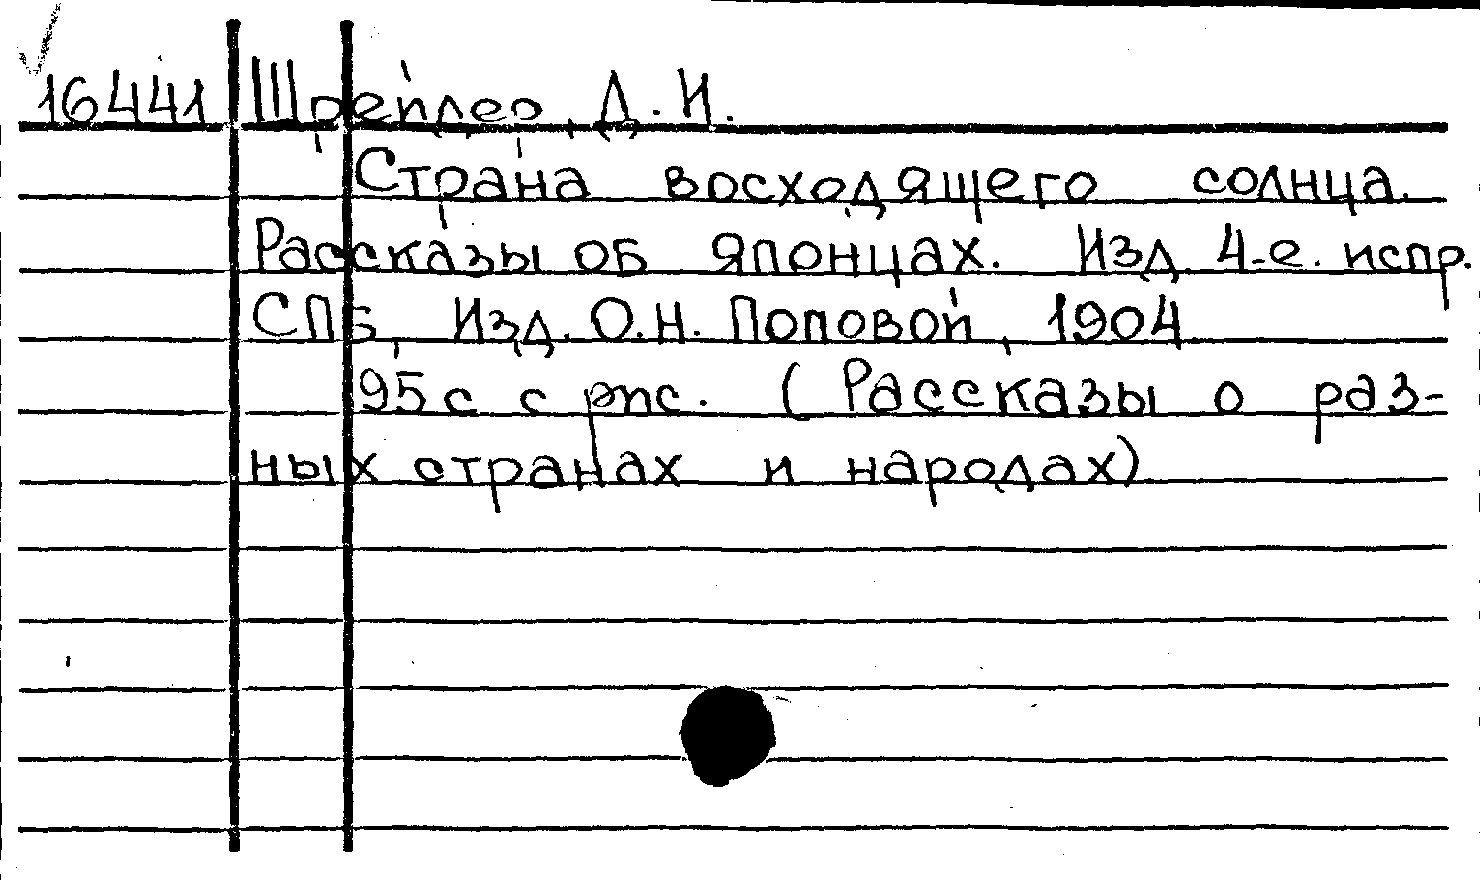 16441 Шрейдер, Д. И.
Страна восходящего солнца.
Рассказы об японцах. Изд. 4-е. испр.
СПБ, Изд. О.Н. Поповой, 1904
95 с с рис. (Рассказы о раз-
ных странах и народах)